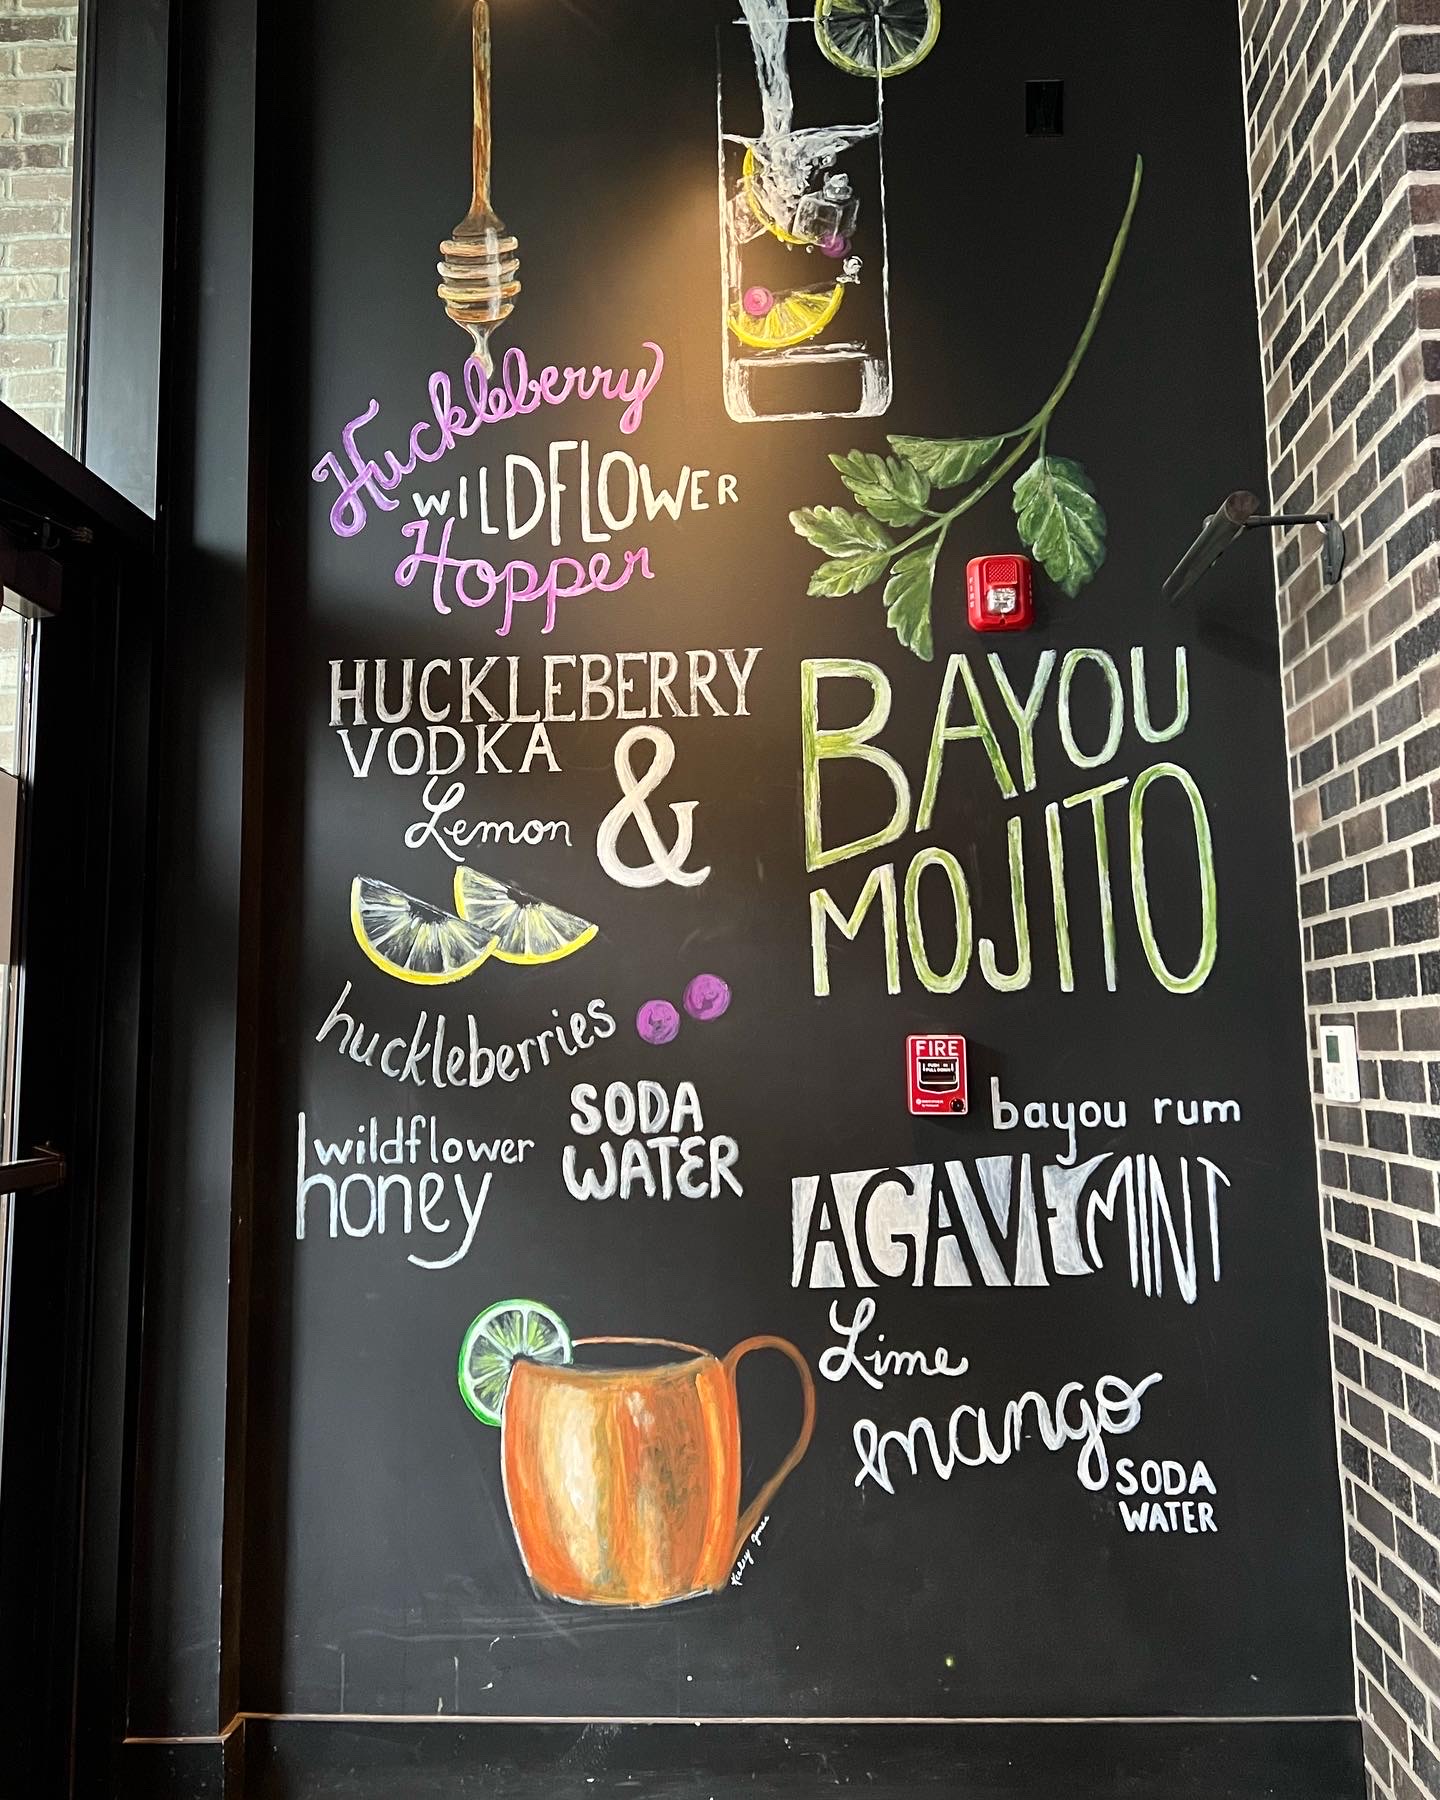 Huckleberry
WILDFLOWER
Hopper
HUCKLEBERRY
VODKA &
Lemon
huckleberries
wildflower
honey
SODA
WATER
BAYOU
MOJITO
FIRE
PUSH IN
PULL DOWN
bayou rum
AGAVE MINT
Lime
mango
SODA
WATER
FIRE